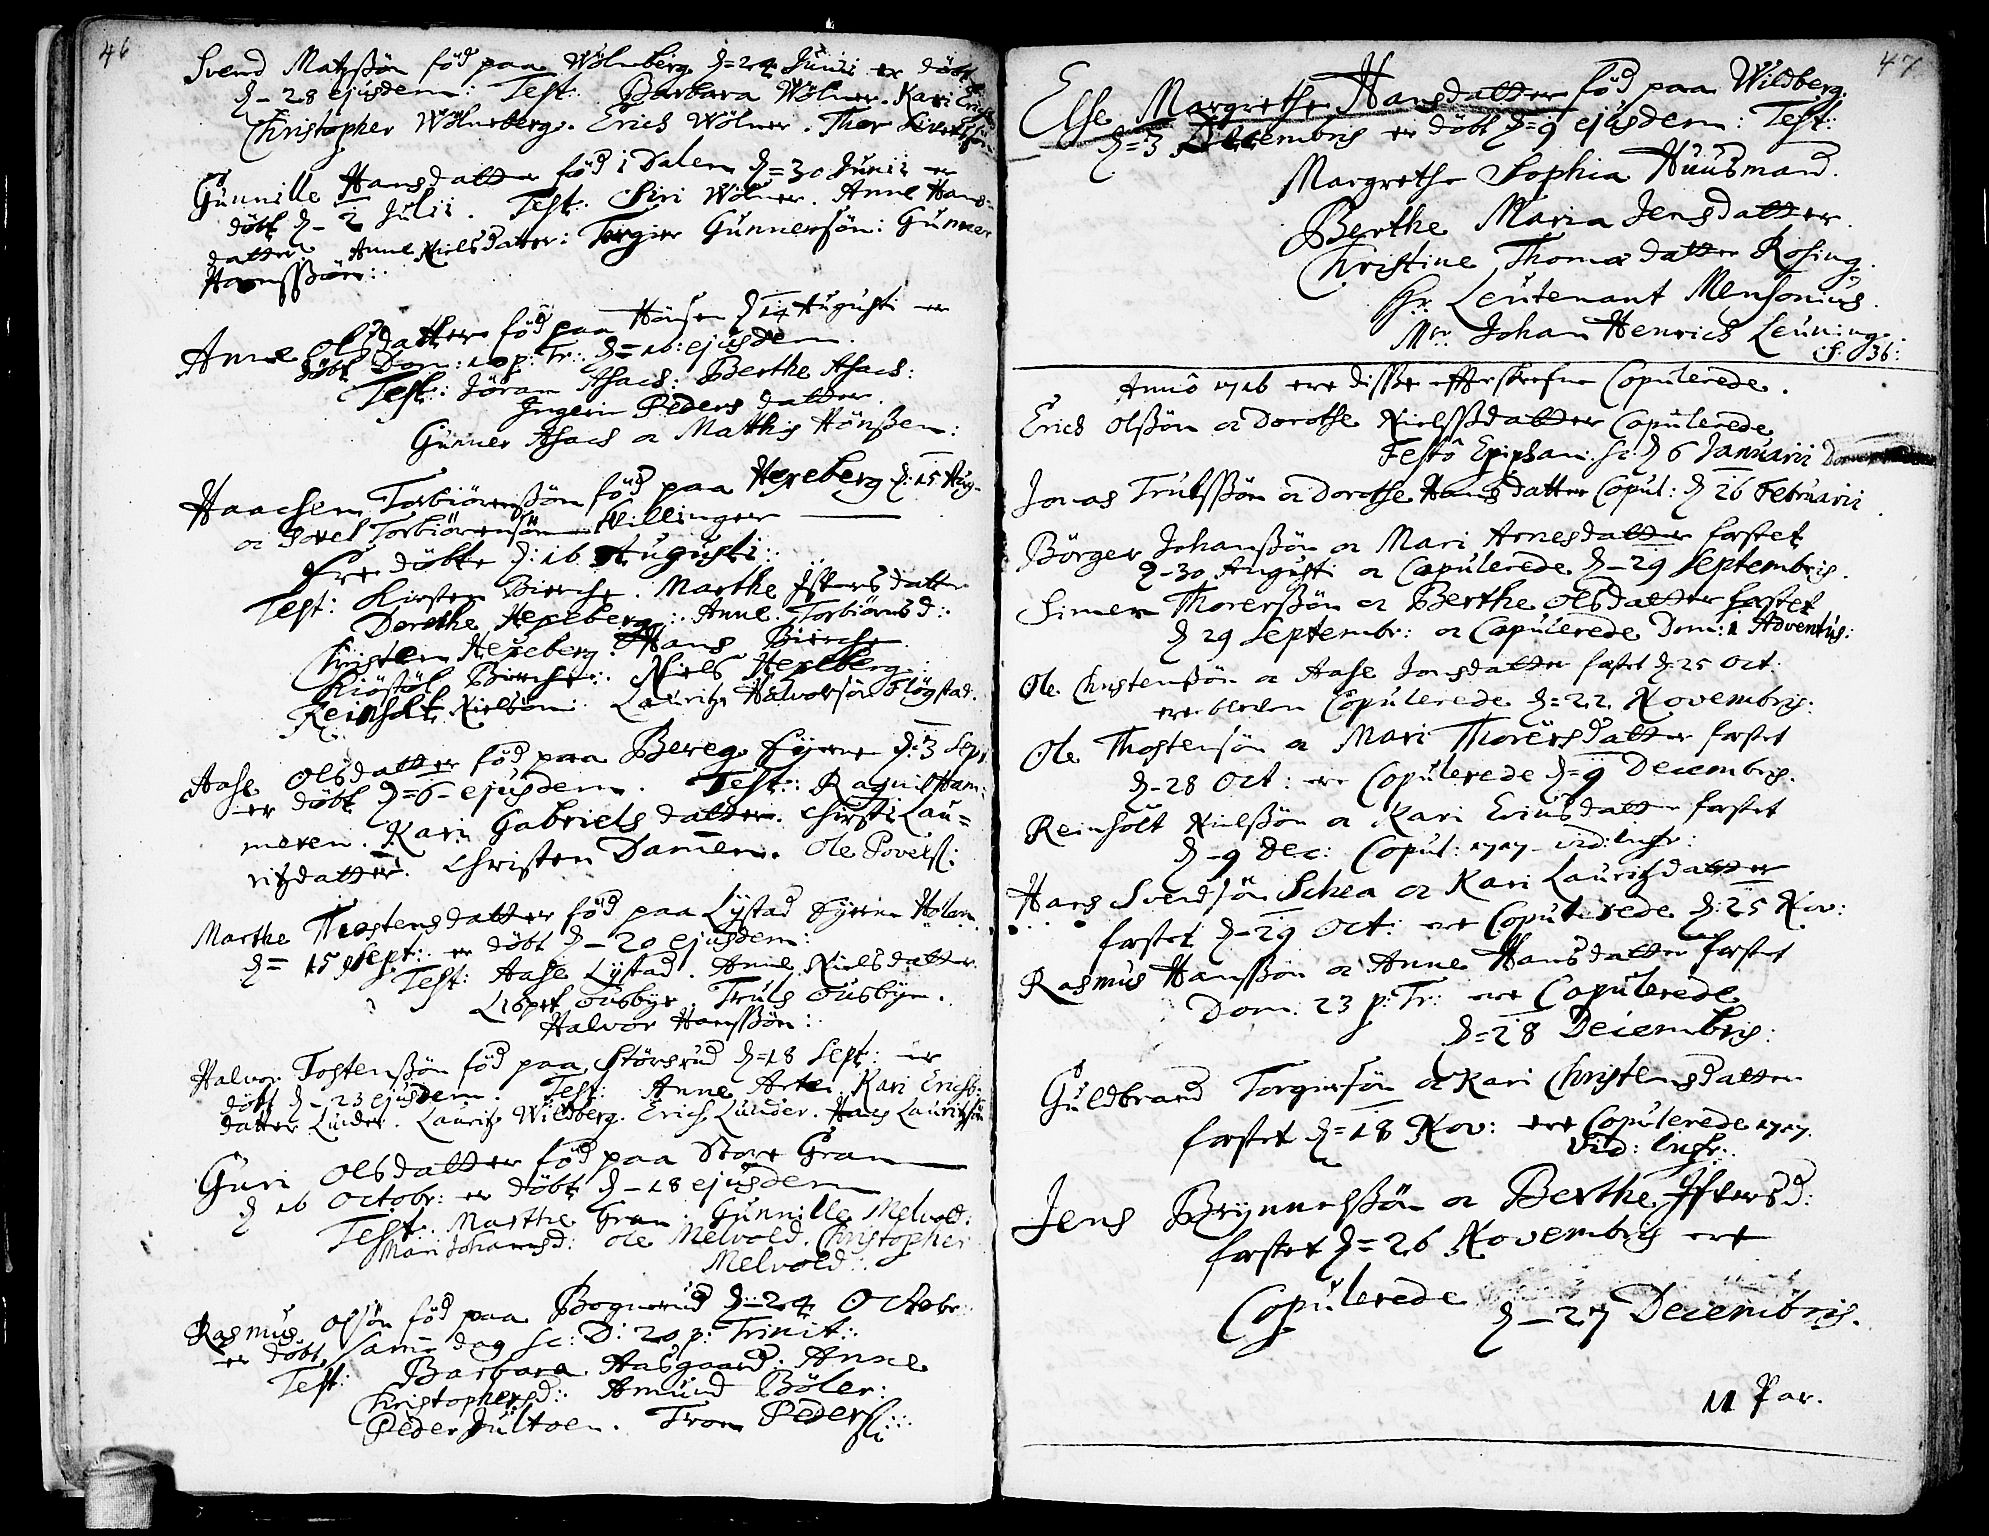 46
Svend Matzßön föd paa Wölneberg d=24 Junii er döbt
d-28 ejusdem: Test: Barbara Wölner. Kari Erichs
Christopher Wölneberg. Erich Wölner. Thor Siversön
Gunnille Hansdatter föd i Dalen d=30 Junii er
döbt d-2 Julii. Test. Siri Wölner. Anne Hans=
datter. Anne Nielsdatter: Torgier Gunnersön: Gunner
Hansßön:
Anne Olsdatter föd paa Hönsen d 14 Augusti er
döbt Dom: 10 p: Tr: d=16: ejusdem.
Test: Jöran Asach: Berthe Asach:
Ingerin Peders datter.
Gunner Asach oc Mathis Hönßen:
Haachen Torbiörnßön föd paa Hexeberg d:15 Aug-
oc Povel Torbiörensön Tvillinger
Ere döbte d:16 Augusti:
Test: Kirsten Bierche. Marthe Ifversdatter
Dorothe Hexeberg: Anne Torbiörnsd:
Christen Hexeberg. Hans Bierche
Kiöstöl Bierche: Niels Hexeberg:
Reinholt Nielsön: Lauritz Halvorsön Flögstad.
Aase Olsdatter föd paa Bereg Eyerne d:3 Sept
er döbt d=6-ejusdem. Test: Ragnil Ham:
meren. Kari Gabriels datter. Chirsti Lau=
ritzdatter. Christen Damen. Ole Povelß:
Marthe Thostensdatter föd paa Lystad Eyerne Holen
d= 15 Sept: er döbt d-20 ejusdem:
Test: Aase Lystad. Anne Nielsdatter.
Lisbet Ousbye. Truls Ousbye.
Halvor Hansßön:
Halvor Tostenßön föd paa Störsrud d=18 Sept: er
döbt d-23 ejusdem. Test: Anne Kari Erichs:
datter Lunder. Lauritz Wildberg. Erich Lunder. Hans Lauritzsön
Guri Olsdatter föd paa Store Gran
d 16 Octobr: er döbt d-18 ejusdem
Test: Marthe Gran. Gunnille Melvold:
Mari Johansd: Ole Melvold. Christopher
Melvold:
Rasmus Olsön föd paa Bognerud d-24 Octobr:
er döbt samme dag sc: D: 20 p: Trinit:
Test: Barbara Aasgaard: Anne
Christophersd: Amund Böler:
Peder Jultoen. Tron Pederß:
47
Else Margrethe Hansdatter föd paa Wildberg
d=3 Decembris er döbt d=9 ejusdem: Test:
Margrethe Sophia Huusmand.
Berthe Maria Jensdatter.
Christine Thomædatter Rosing.
Hr. Leutenant Mensonius.
Mr. Johan Henrich Leuning.
S: 36:
Anno 1716 ere disse efterskrefne Copulerede.
Erich Olsßön oc Dorothe Nielsßdatter Copulerede
Festo Epiphan: sc: d 6 Januarii
Jonas Trulsßön oc Dorothe Hansdatter Copul: d 26 Februarii
Börger Johanßön oc Mari Arnesdatter fæstet
d-30 Augusti oc Copulerede d-29 Septembris.
Simen Thorersßön oc Berthe Olsdatter fæstet
d 29 Septembr: oc Copulerede Dom: 1 Adventus:
Ole Christenßön oc Aase Jonsdatter fæstet d 25 Oct:
ere blefven Copulerede d=22 Novembris:
Ole Thostensön oc Mari Thorersdatter fæstet
d-28 Oct: ere Copulerede d=9 Decembris.
Reinholt Nielßön oc Kari Erichsdatter fæstet
d-9 Dec: Copul: 1717 vid: infr:
Hans Svendsön Schea oc Kari Lauritzdatter
fæstet d-29 Oct: ere Copulerede d:25 Nov:
Rasmus Hansßön oc Anne Hansdatter fæstet
Dom. 23 p: Tr: ere Copulerede
d=28 Decembris:
Guldbrand Torgiersön oc Kari Christensdatter
fæstet d=18 Nov: ere Copulerede 1717.
Vid: infr:
Jens Brynnelsßön oc Berthe Ifversd:
fæstet d=26 Novembris ere
Copulerede d-27 Decembris.
11 Par.